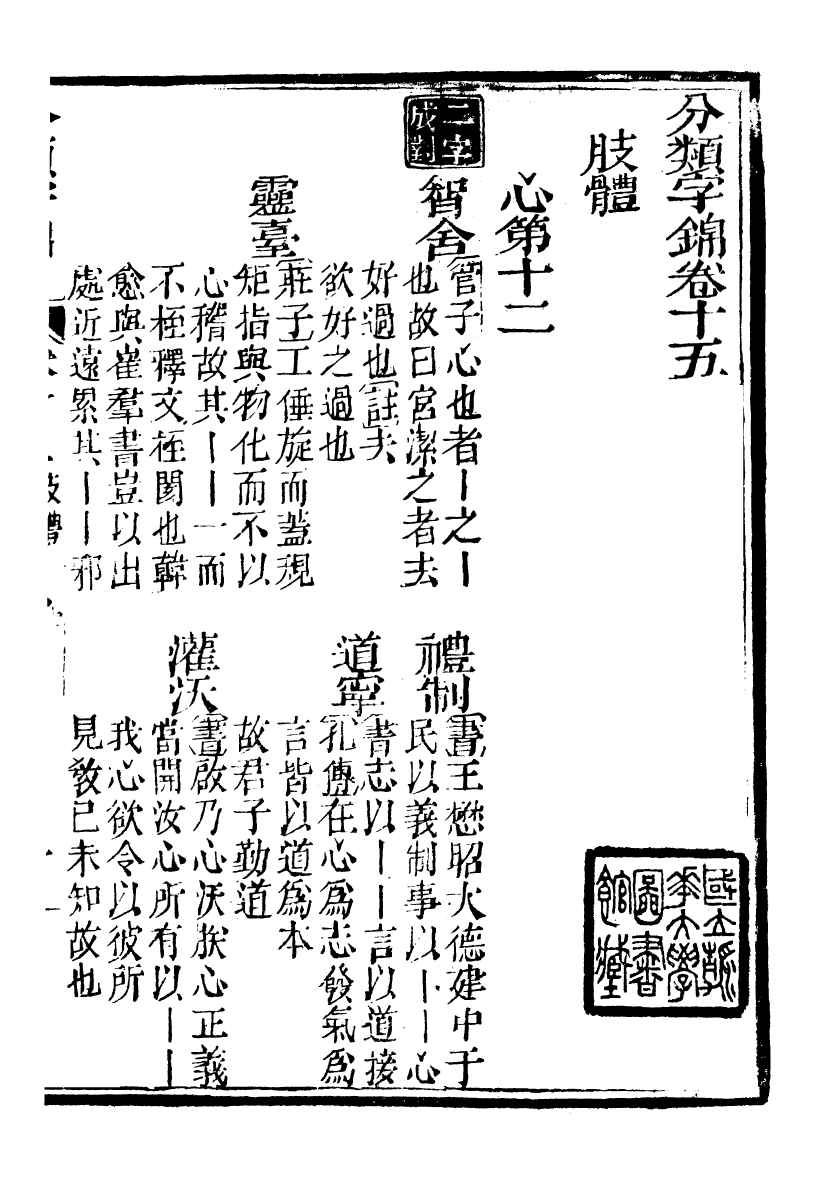 分類字錦卷十五
肢體
心第十二
二字
成對
智舍
管子心也者丨之丨
也故曰宮潔之者去
好過也註夫
欲好之過也
靈臺
莊子工倕旋而蓋規
矩指與物化而不以
心稽故其丨丨一而
不桎釋文桎閡也韓
愈與崔羣書豈以出
處近遠累其丨丨邪
禮制
書王懋昭大德建中于
民以義制事以丨丨心
道寧
書志以丨丨言以道接
孔傳在心爲志發氣爲
言皆以道爲本
故君子勤道
灌沃
書啟乃心沃朕心正義
當開汝心所有以丨丨
我心欲令以彼所
見敎已未知故也
國立
華大學
圖書
館藏